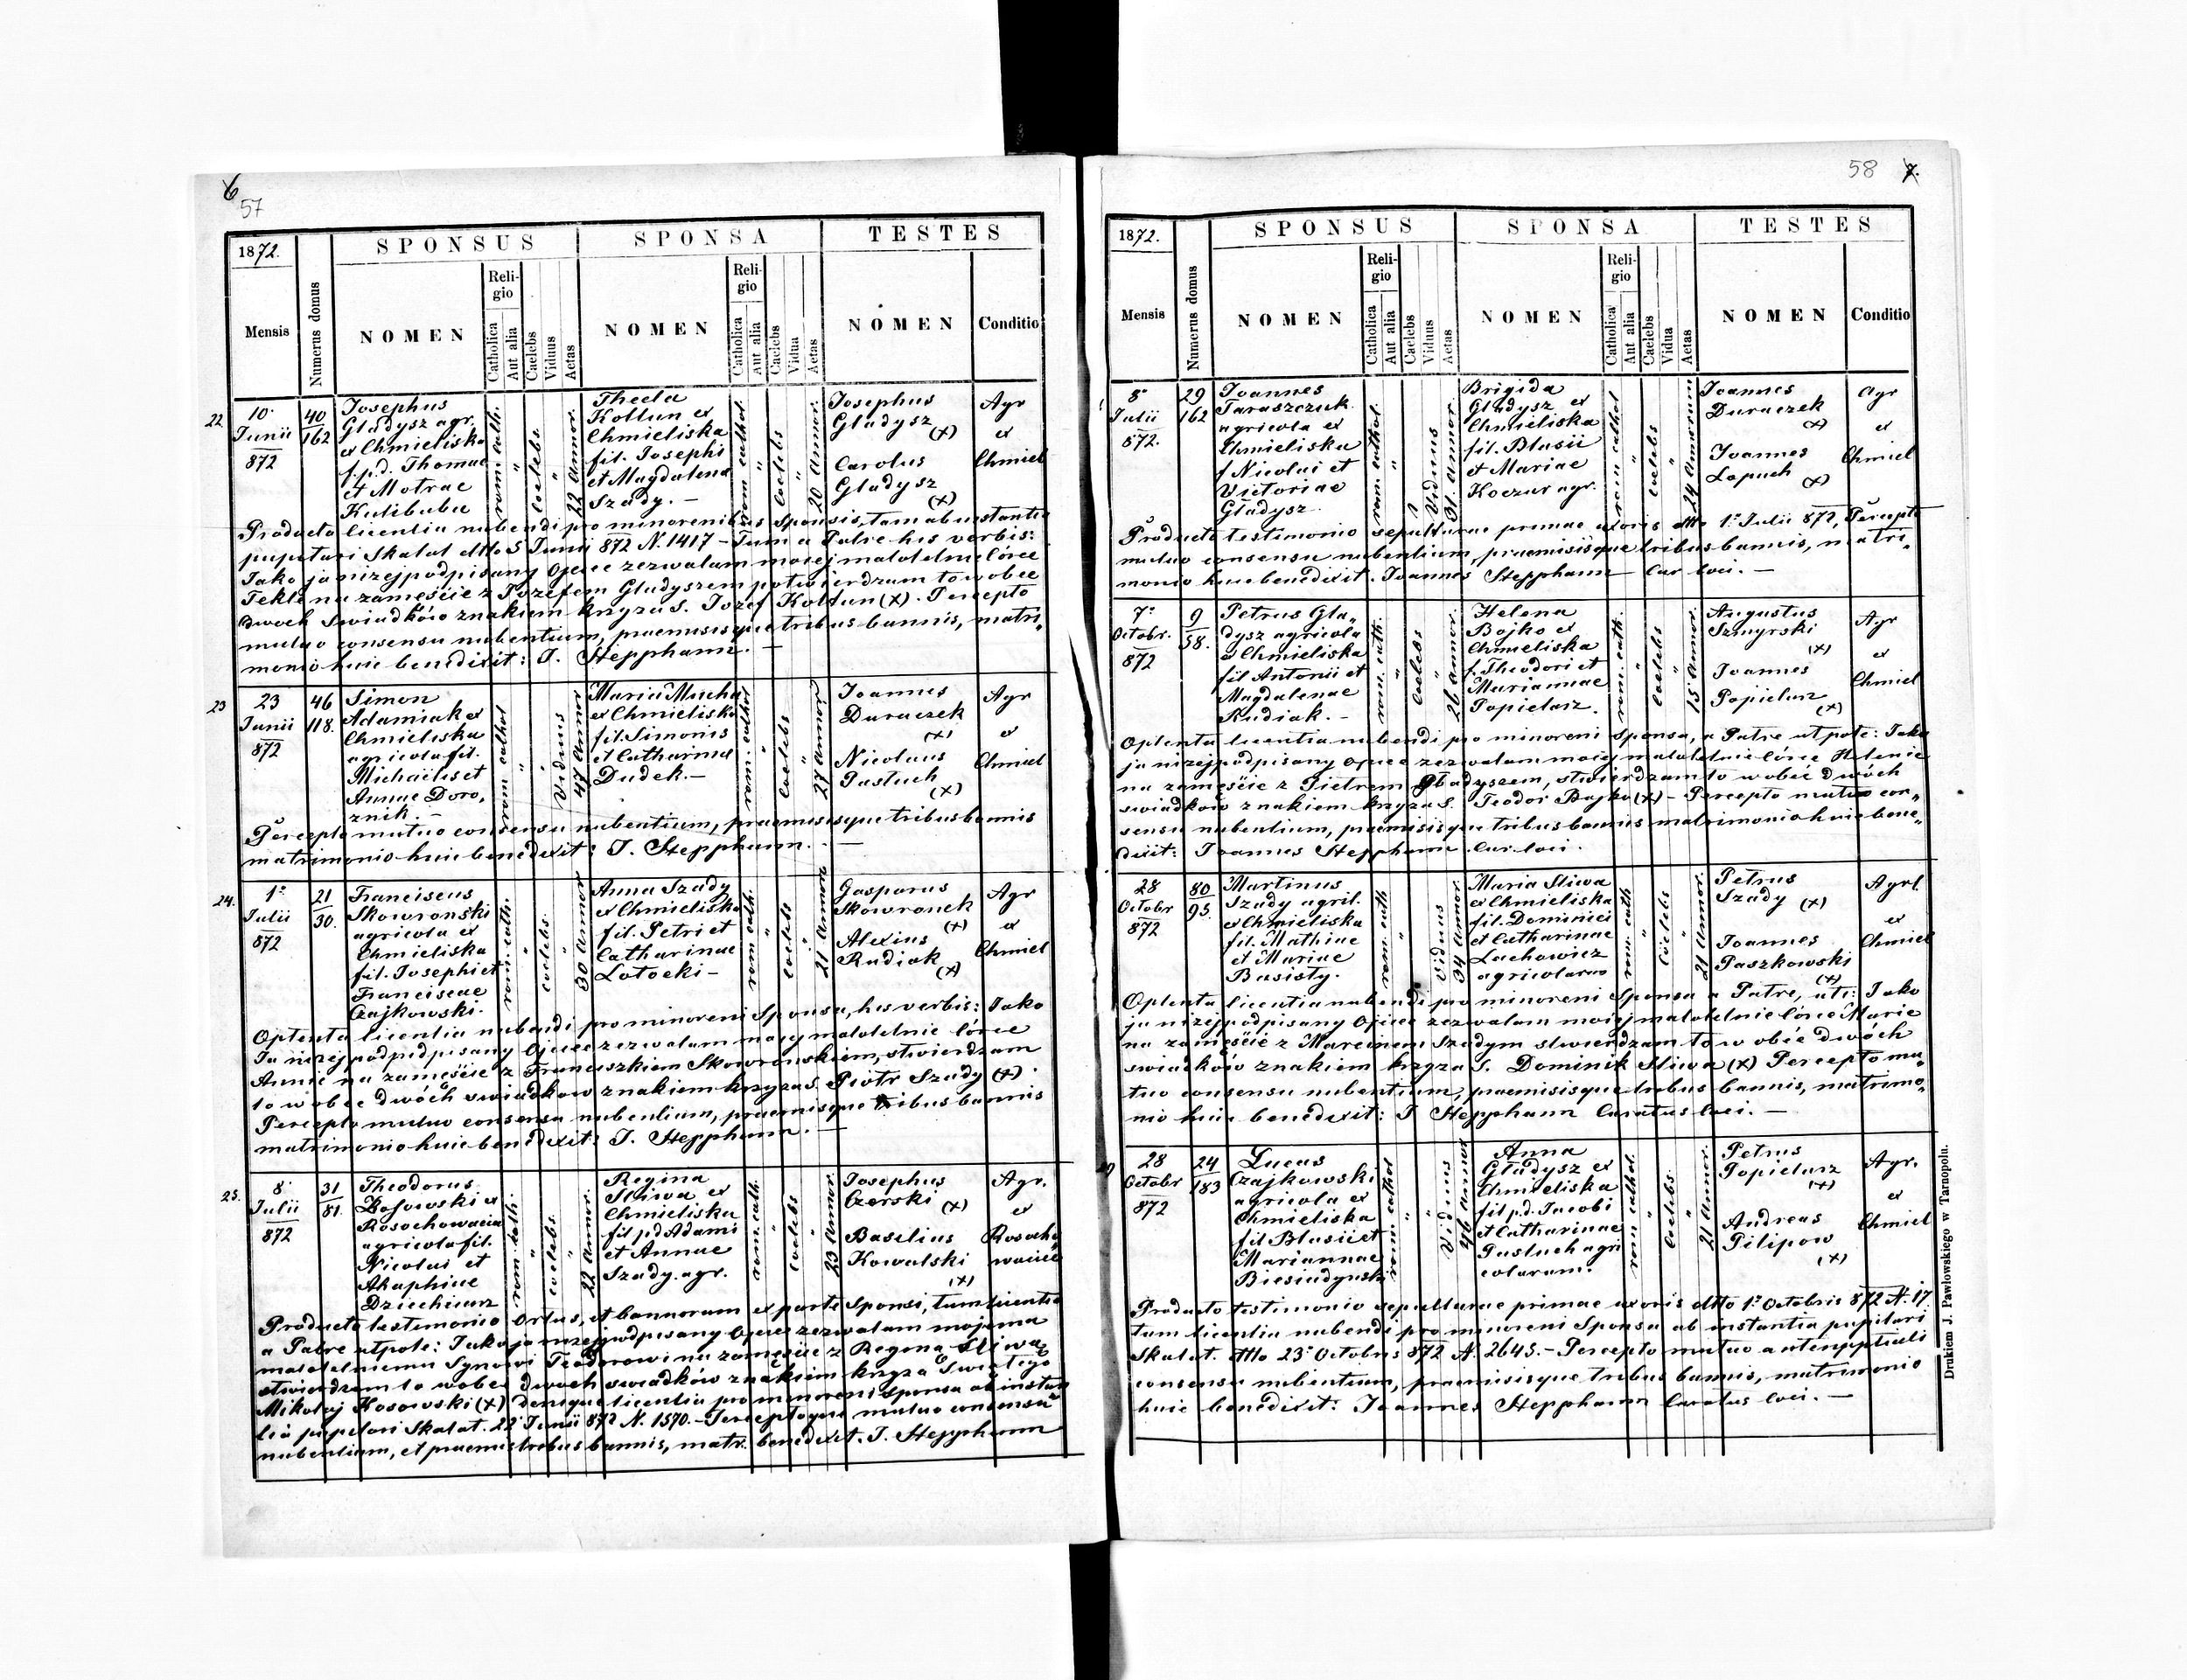 6
57
1872.
SPONSUS
SPONSA
TESTES
Mensis
Numerus domus
NOMEN
Religio
Catholica
Aut alia
Caelebs
Viduus
Aetas
NOMEN
Religio
Catholica
Aut alia
Caelebs
Vidua
Aetas
NOMEN
Conditio
22
10.
Junii
872
40
162
Josephus
Gładysz agr.
ex Chmieliska
f. p. d. Thomae
et Motrae
Kulibaba
rom. cath.
"
coelebs
"
22 annor.
Thecla
Kołtun ex
Chmieliska
fil. Josephi
et Magdalena
Szady. —
rom cathol.
"
coelebs
"
20 annor.
Josephus
Gładysz
(x)
Carolus
Gładysz
(x)
Agr
ex
Chmiel
Producta licentia nubendi pro minorenibus sponsis, tam ab instantia
pupillari Skałat dtto 5 Junii 872 N. 1417 – Tum a Patre his verbis:
Jako ja niżej podpisany Ojciec zezwalam mojej małoletnie córce
Tekli na zamęście z Józefem Gładyszem potwierdzam to wobec
dwoch świadków znakiem krzyża S. Jozef Kołtun (x). Percepto
mutuo consensu nubentium, praemisisque tribus bannis, matri„
monio huic benedixit: J. Stepphann. —
23
23
Junii
872
46
118.
Simon
Adamiak ex
Chmieliska
agricola fil.
Michaelis et
Annae Doro,
znik. –
rom cathol
"
Viduus
47 annor
Maria Mucha
ex Chmieliska
fil. Simonis
et Catharina
Dudek. —
rom. cathol
"
coelebs
"
27 annor
Joannes
Duraczek
(x)
Nicolaus
Pastuch
(x)
Agr
ex
Chmiel
Percepto mutuo consensu nubentium, praemisisque tribus bannis
matrimonio huic benedixit: J. Stepphann. —
24.
1.
Julii
872
21
30.
Franciscus
Skowronski
agricola ex
Chmieliska
fil. Josephi et
Franciscae
Czajkowski.
rom. cath.
"
coelebs.
"
30 annor
Anna Szady
ex Chmieliska
fil. Petri et
Catharinae
Łotocki –
rom cath.
"
coelebs
"
21 annor
Gasparus
Skowronek
(x)
Alexius
Rudiak
(x)
Agr
ex
Chmiel
Optenta licentia nubendi pro minoreni Sponsa, his verbis: Jako
Ja niżej podpidpisany Ojciec zezwalam mojej małoletnie córce
Annie na zamęście z Franciszkiem Skowronskiem, stwierdzam
to wobec dwóch świadkow znakiem krzyża S. Piotr Szady (x).
Percepto mutuo consensu nubentium, praemisque tribus bannis
matrimonio huic benedixit: J. Stepphann. —
25.
8.
Julii
872
31
81.
Theodorus
Kosowski ex
Rosochowaciec
agricola fil.
Nicolai et
Ahaphiae
Dziechciarz
rom cath.
"
coelebs.
"
22 annor.
Regina
Śliwa ex
Chmieliska
fil p. d Adami
et Annae
Szady. agr.
rom. cath.
"
coelebs
"
23 annor.
Josephus
Czerski
(x)
Basilius
Kowalski
(x)
Agr.
ex
Rosocho
waciec
Producto testimonio Ortus, et bannorum ex parte Sponsi, tum licentia
a Patre utpote: Jako ja niżej podpisany Ojciec zezwalam mojemu
małoletniemu Synowi Teodorowi na zamęście z Regina Śliwa
stwierdzam to wobec dwoch swiadków znakiem krzyża Swiętego
Mikołaj Kosowski (x) denique licentia pro minoreni sponsa ab instan
tia pupilari Skałat. 22 Junii 872 N. 1570. – Perceptoque mutuo consensu
nubentium, et praemis tribus bannis, matr. benedixit. J. Stepphann
58
7.
1872.
SPONSUS
SPONSA
TESTES
Mensis
Numerus domus
NOMEN
Religio
Catholica
Aut alia
Caelebs
Viduus
Aetas
NOMEN
Religio
Catholica
Aut alia
Caelebs
Vidua
Aetas
NOMEN
Conditio
8.
Julii
872.
29
162
Joannes
Taraszczuk
agricola ex
Chmieliska
f Nicolai et
Victoriae
Gładysz
rom. cathol.
"
Viduus
31. annor.
Brigida
Gładysz ex
Chmieliska
fil. Blasii
et Mariae
Koczur agr.
rom cathol
"
coelebs
"
24 annorum
Joannes
Duraczek
(x)
Joannes
Łapuch
(x)
Agr
ex
Chmiel
Producto testimonio sepulturae primae uxoris dtto 1. Julii 872, Percepto
mutuo consensu nubentium, praemisisque tribus bannis, matri„
monio huic benedixit. Joannes Stepphann Cur loci. —
7.
Octobr.
872
9
58.
Petrus Gła„
dysz agricola
ex Chmieliska
fil Antonii et
Magdalenae
Rudiak. –
rom. cath.
"
Coelebs
"
26 annor.
Helena
Bojko ex
Chmieliska
f. Theodori et
Mariannae
Popielarz.
rom. cath.
"
Coelebs
"
15 annor.
Augustus
Szmyrski
(x)
Joannes
Popielarz
(x)
Agr
ex
Chmiel
Optenta licentia nubendi pro minoreni sponsa, a Patre utpote: Jako
ja niżej podpisany Ojciec zezwalam mojej małoletnie córce Helenie
na zamęście z Pietrem Gładyszem, stwierdzam to wobec dwóch
swiadkow znakiem krzyża S. Teodor Bojko (x) – Percepto mutuo con„
sensu nubentium, praemisisque tribus bannis matrimonio huic bene„
dixit: Joannes Stepphann Cur. loci.
28
Octobr
872
80
95.
Martinus
Szady agril.
ex Chmieliska
fil. Mathiae
et Mariae
Basisty.
rom. cath
"
viduus
34 annor.
Maria Sliwa
ex Chmieliska
fil. Dominici
et Catharinae
Lachowicz
agricolarum
rom. cath
"
Coelebs
"
21 annor.
Petrus
Szady (x)
Joannes
Paszkowski
(x)
Agrl.
ex
Chmiel
Optenta licentia nubendi pro minoreni Sponsa a Patre, uti: Jako
ja niżej podpisany Ojciec zezwalam mojej małoletnie córce Marie
na zamęście z Marcinem Szadym stwierdzam to w obec dwóch
świadków znakiem krzyza S. Dominik Sliwa (x) Percepto mu„
tuo consensu nubentium, praemisisque tribus bannis, matrimo„
nio huic benedixit: J Stepphann Curatus loci. —
28
Octobr
872
24
183
Lucas
Czajkowski
agricola ex
Chmieliska
fil Blasii et
Mariannae
Biesiadynski
rom cathol
"
"
Viduus
46 annor
Anna
Gładysz ex
Chmieliska
fil p.d. Jacobi
et Catharinae
Pastuch agri
colarum.
rom cathol.
"
Coelebs.
"
21 annor.
Petrus
Popielarz
(x)
Andreas
Pilipow
(x)
Agr.
ex
Chmiel
Producto testimonio sepulturae primae uxoris dtto 1. Octobris 872 N. 17
tum licentia nubendi pro minoreni Sponsa ab instantia pupilari
Skałat. dtto 23. Octobris 872 N. 2645. – Percepto mutuo antenuptiali
consensu nubentium, praemisisque tribus bannis, matrimonio
huic benedixit: Joannes Stepphann Curatus loci. —
Drukiem J. Pawłowskiego w Tarnopolu.